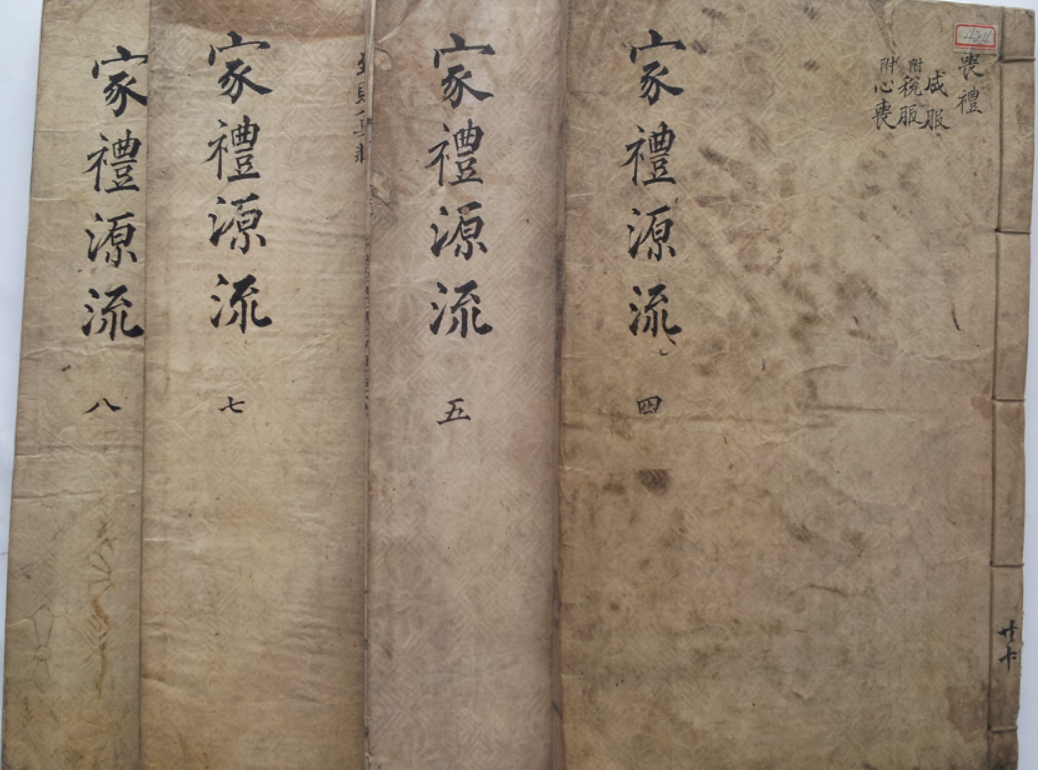 喪禮
成服
附稅服
附心喪
家禮源流 四
家禮源流 五
家禮源流 七
家禮源流 八